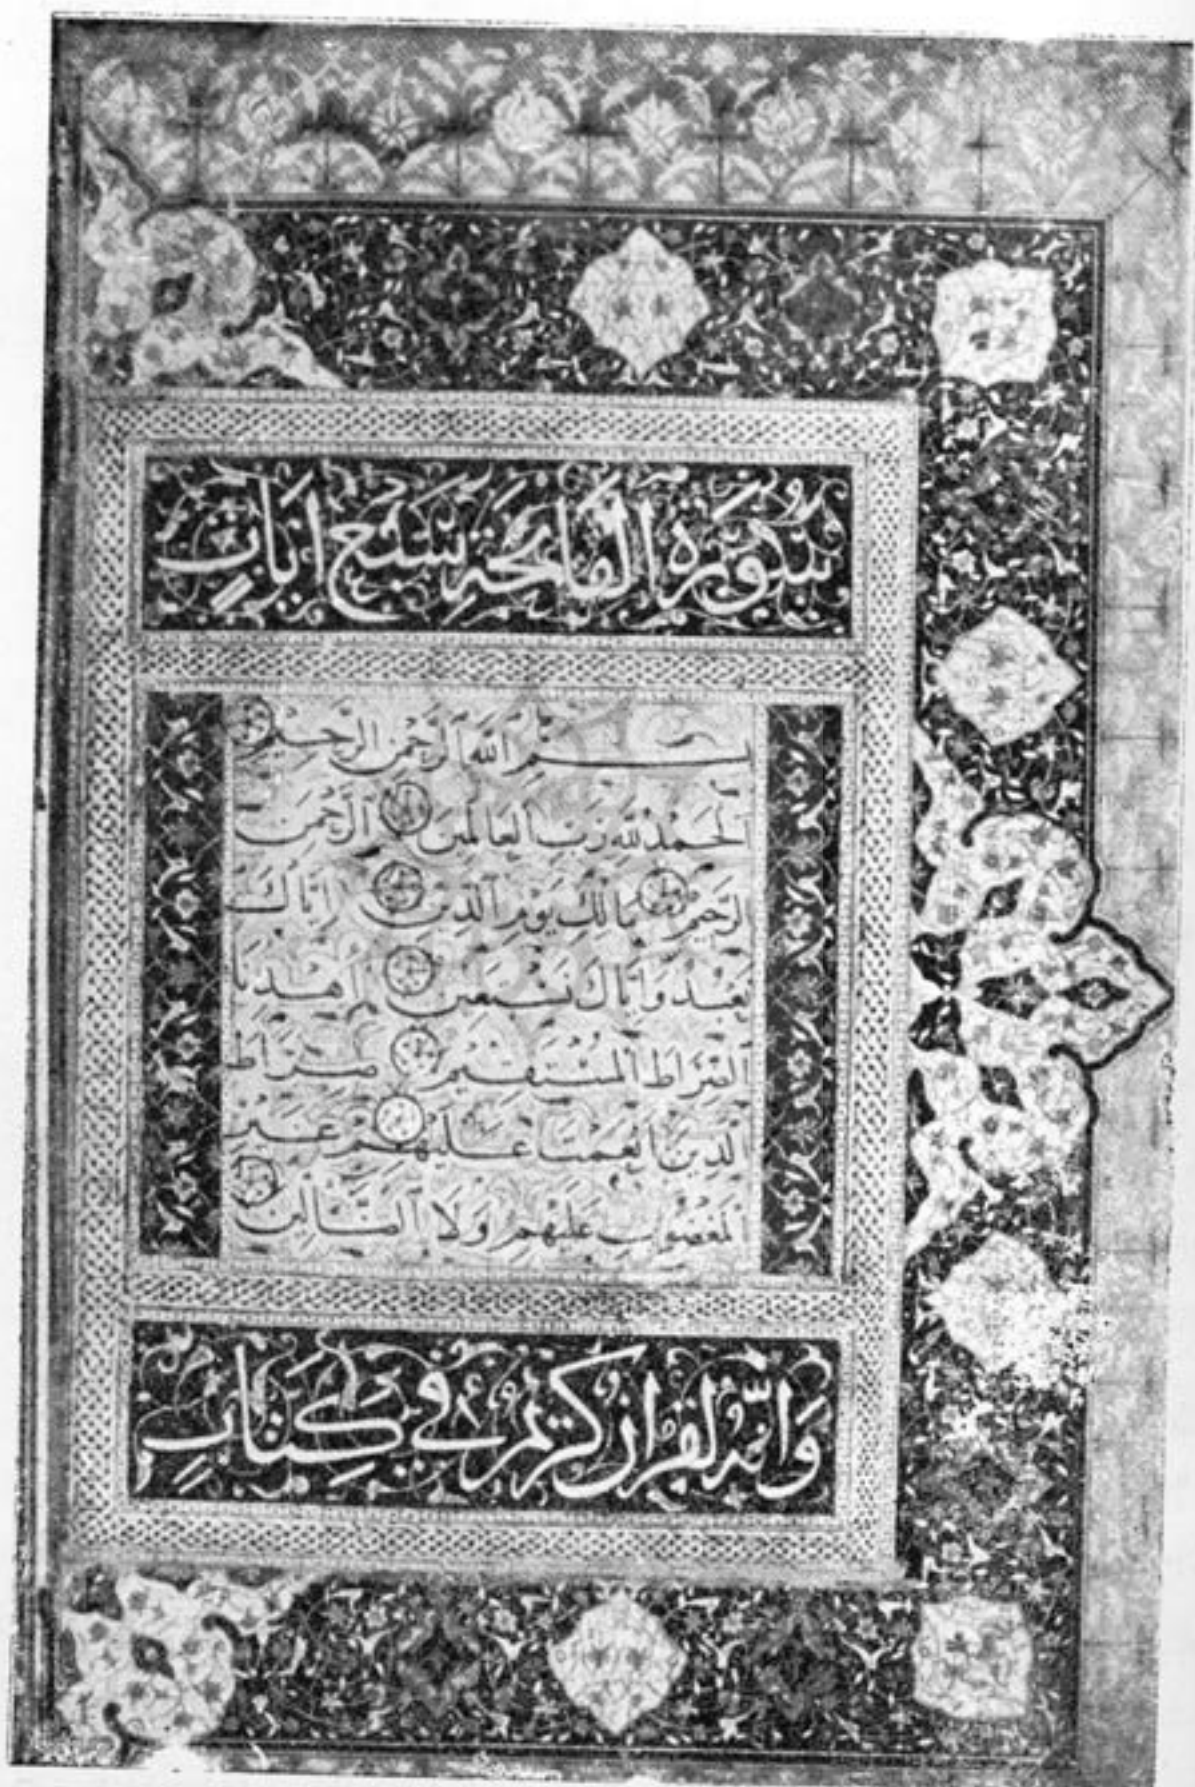 سُورَةُ الفَاتِحَةِ سَبْعُ اٰيَاتٍ
بِسْمِ اللهِ الرَّحْمٰنِ الرَّحِيْمِ
اَلْحَمْدُ لِلّٰهِ رَبِّ الْعَالَمِيْنَ اَلرَّحْمٰنِ
الرَّحِيْمِ مَالِكِ يَوْمِ الدِّيْنِ اِيَّاكَ
نَعْبُدُ وَاِيَّاكَ نَسْتَعِيْنُ اِهْدِنَا
الصِّرَاطَ الْمُسْتَقِيْمَ صِرَاطَ
الَّذِيْنَ اَنْعَمْتَ عَلَيْهِمْ غَيْرِ
الْمَغْضُوْبِ عَلَيْهِمْ وَلَا الضَّالِّيْنَ
وَاِنَّهُ لَقُرْاٰنٌ كَرِيْمٌ فِي كِتَابٍ